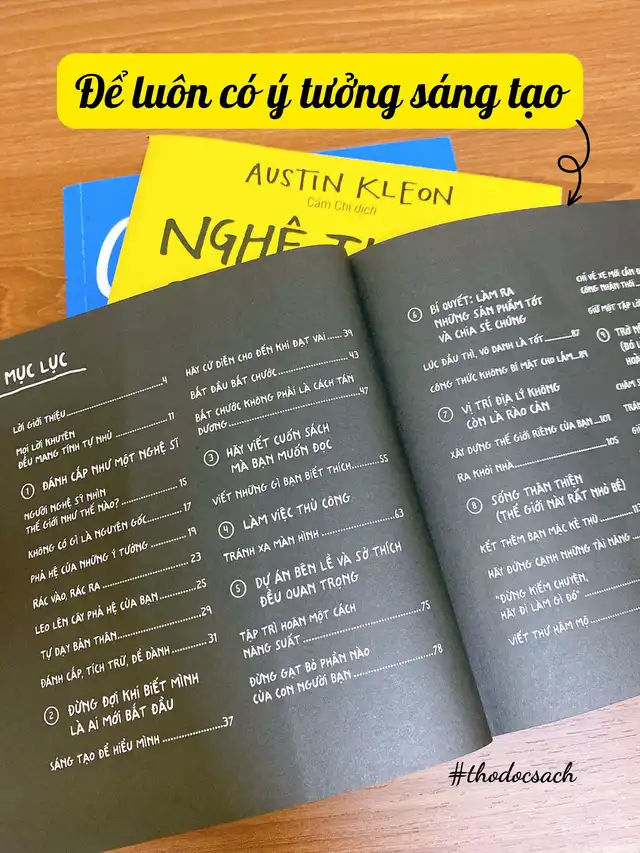 Để luôn có ý tưởng sáng tạo
AUSTIN KLEON
Cẩm Chi dịch
NGHỆ
MỤC LỤC
LỜI GIỚI THIỆU 4
MỌI LỜI KHUYÊN
ĐỀU MANG TÍNH TỰ NHỦ 11
1 ĐÁNH CẮP NHƯ MỘT NGHỆ SĨ
NGƯỜI NGHỆ SĨ NHÌN
THẾ GIỚI NHƯ THẾ NÀO? 15
KHÔNG CÓ GÌ LÀ NGUYÊN GỐC 17
PHẢ HỆ CỦA NHỮNG Ý TƯỞNG 19
RÁC VÀO, RÁC RA 23
LEO LÊN CÂY PHẢ HỆ CỦA BẠN 25
TỰ DẠY BẢN THÂN 29
ĐÁNH CẮP, TÍCH TRỮ, ĐỂ DÀNH 31
2 ĐỪNG ĐỢI KHI BIẾT MÌNH
LÀ AI MỚI BẮT ĐẦU
SÁNG TẠO ĐỂ HIỂU MÌNH 37
HÃY CỨ DIỄN CHO ĐẾN KHI ĐẠT VAI 39
BẮT ĐẦU BẮT CHƯỚC 43
BẮT CHƯỚC KHÔNG PHẢI LÀ CÁCH TÁN
DƯƠNG 47
3 HÃY VIẾT CUỐN SÁCH
MÀ BẠN MUỐN ĐỌC
VIẾT NHỮNG GÌ BẠN BIẾT THÍCH 55
4 LÀM VIỆC THỦ CÔNG
TRÁNH XA MÀN HÌNH 63
5 DỰ ÁN BÊN LỀ VÀ SỞ THÍCH
ĐỀU QUAN TRỌNG
TẬP TRÌ HOÃN MỘT CÁCH
NĂNG SUẤT 75
ĐỪNG GẠT BỎ PHẦN NÀO
CỦA CON NGƯỜI BẠN 78
6 BÍ QUYẾT: LÀM RA
NHỮNG SẢN PHẨM TỐT
VÀ CHIA SẺ CHÚNG
LÚC ĐẦU THÌ, VÔ DANH LÀ TỐT 87
CÔNG THỨC KHÔNG BÍ MẬT CHO LẮM 89
7 VỊ TRÍ ĐỊA LÝ KHÔNG
CÒN LÀ RÀO CẢN
XÂY DỰNG THẾ GIỚI RIÊNG CỦA BẠN 101
RA KHỎI NHÀ 105
8 SỐNG THÂN THIỆN
(THẾ GIỚI NÀY RẤT NHỎ BÉ)
KẾT THÊM BẠN MẶC KỆ THÙ
HÃY ĐỨNG CẠNH NHỮNG TÀI NĂNG
"ĐỪNG KIẾM CHUYỆN,
HÃY ĐI LÀM GÌ ĐÓ"
VIẾT THƯ HÂM MỘ
CHỈ VẼ XE MỚI CẦN
CÔNG NHẬN THÔI
GIỮ MỘT TẬP
9
#thodocsach